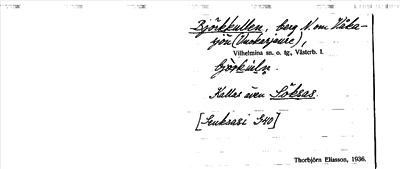 Björkkullen, berg N. om Vāka-
sjön (Vuokasjaure),
Vilhelmina sn. o. tg., Västerb. l.
Kallas även Söksas.
[Seuksasi S40]
Thorbjörn Eliasson, 1936.